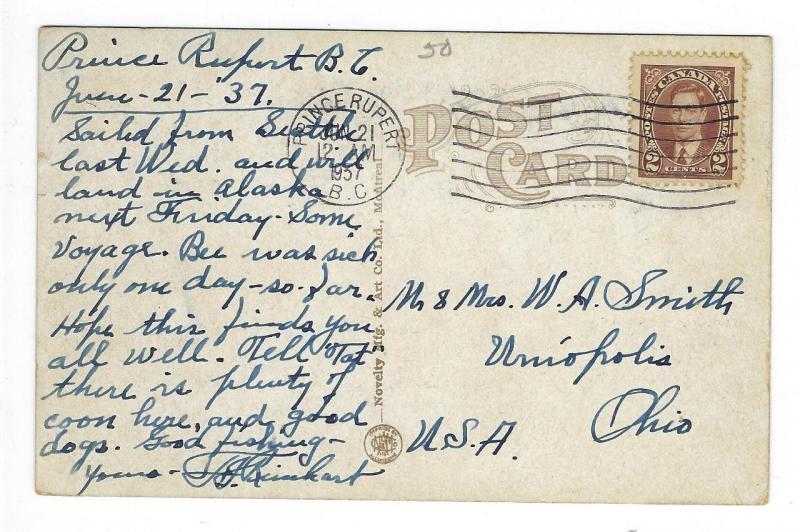 Prince Rupert B.C.
June-21-'37.
Sailed from Seattle
last Wed. and will
land in Alaska
next Friday. Some
Voyage. Bee was sick
only one day-so-far.
Hope this finds you
all well. Tell "Pat"
there is plenty of
coon here, and good
dogs. Good fishing-
Yours- Rinehart
50
PRINCE RUPERT
JUN 21
12- AM
1937
B.C.
POST
CARD
POSTES CANADA POSTAGE
2 2
CENTS
Novelty Mfg. & Art Co. Ltd., Montreal
M & Mrs. W. A. Smith
Uniopolis
Ohio
U.S.A.